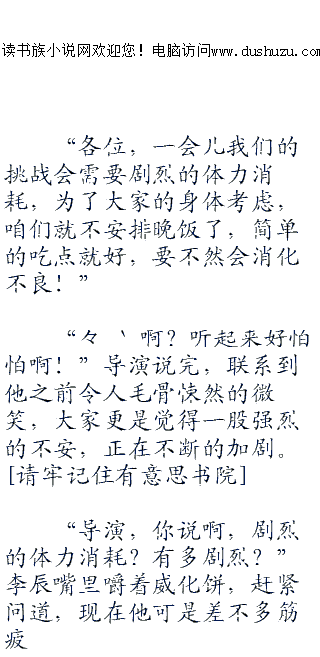 读书族小说网欢迎您！电脑访问www.dushuzu.com
“各位，一会儿我们的
挑战会需要剧烈的体力消
耗，为了大家的身体考虑，
咱们就不安排晚饭了，简单
的吃点就好，要不然会消化
不良！”
“々 丶啊？听起来好怕
怕啊！”导演说完，联系到
他之前令人毛骨悚然的微
笑，大家更是觉得一股强烈
的不安，正在不断的加剧。
[请牢记住有意思书院]
“导演，你说啊，剧烈
的体力消耗？有多剧烈？”
李辰嘴里嚼着威化饼，赶紧
问道，现在他可是差不多筋
疲